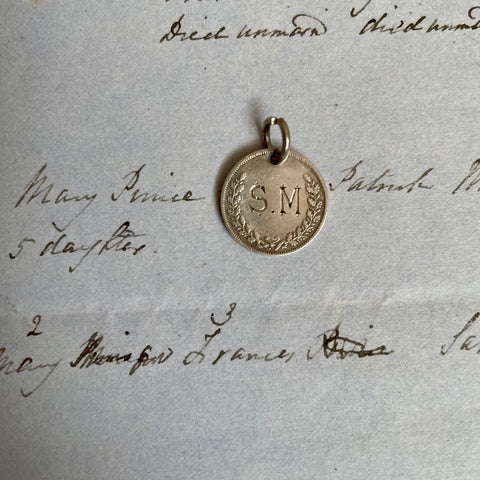 Died unmard died unm
Mary Prince Patrick M
S.M
5 daughter.
2 3
Mary Frances Sa